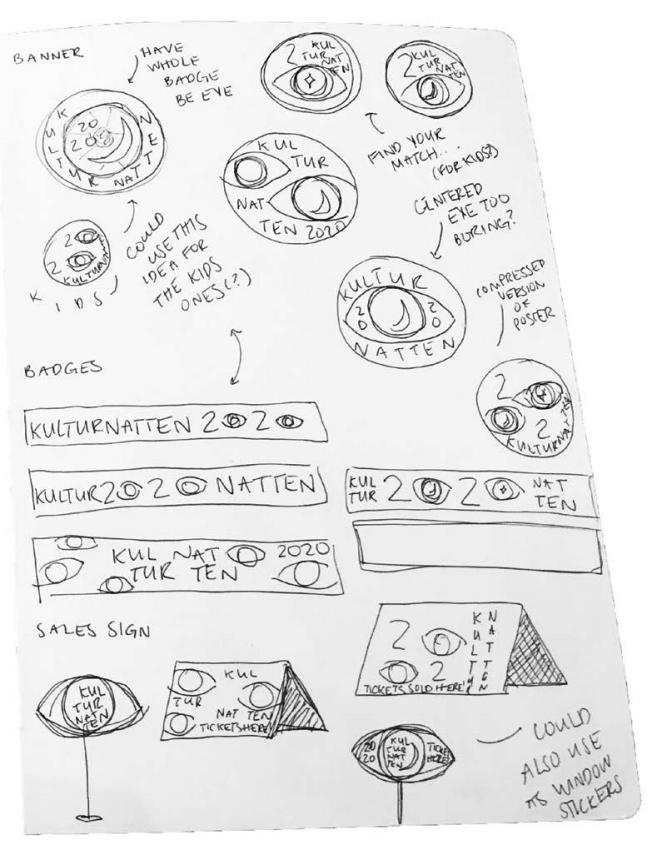 BANNER
HAVE
WHOLE
BADGE
BE EYE
KULTUR NATTEN
20
20
2 KUL
TUR
NAT
TEN
2 KUL
TUR
NAT
TEN
FIND YOUR
MATCH...
(FOR KIDS?)
KUL
TUR
NAT
TEN 2020
CENTERED
EYE TOO
BORING?
COULD
USE THIS
IDEA FOR
THE KIDS
ONES(?)
2
2
KULTURNATTEN
KIDS
KULTUR
2
0
2
0
NATTEN
COMPRESSED
VERSION
OF
POSTER
2
2
KULTURNATTEN
BADGES
KULTURNATTEN 2 2
KULTUR 2 2 NATTEN
KUL
TUR
2 2
NAT
TEN
KUL NAT 2020
TUR TEN
SALES SIGN
KUL
TUR
NAT
TEN
KUL
TUR
NAT TEN
TICKETS HERE!
2
2
KULTUR
NATTEN
TICKETS SOLD HERE!
20
20
KUL
TUR
NAT
TEN
TICKETS
HERE!
COULD
ALSO USE
AS WINDOW
STICKERS